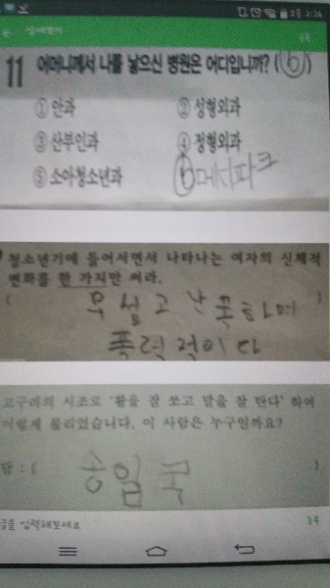 11 어머니께서 나를 낳으신 병원은 어디입니까? (6)
① 안과 ② 성형외과
③ 산부인과 ④ 정형외과
⑤ 소아청소년과 ⑥ 메키파크
청소년기에 들어서면서 나타나는 여자의 신체적
변화를 한 가지만 써라.
( 무섭고 난폭하며 )
폭력적이다
고구려의 시조로 '활을 잘 쏘고 말을 잘 탄다' 하여
이렇게 불리었습니다. 이 사람은 누구인까요?
답 : ( 송일국 )
글을 입력해보세요